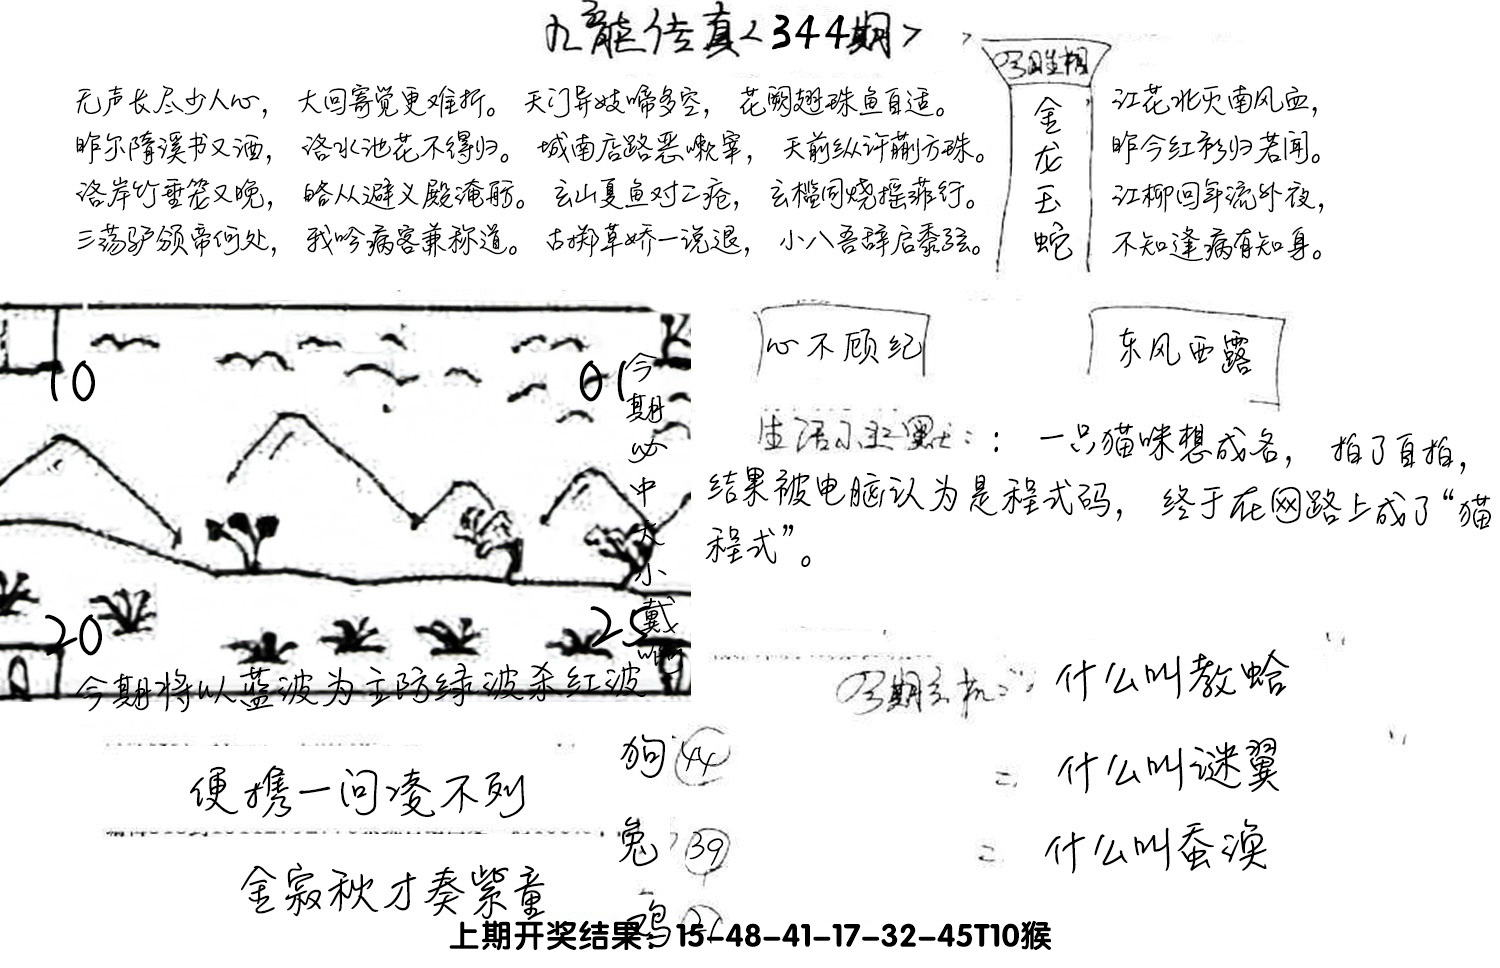 九龙传真<344期>
今期生相
金龙玉蛇
无声长尽少人心，大回寄觉更难折。天门异妓啼多空，花阙翅珠鱼自适。
昨尔隋溪书又酒，洛水池花不得归。城南店路恶嗽宰，天前纵许蒯方珠。
洛岸竹垂笼又晚，皓从避义殿淹舫。玄山夏鱼对二疮，玄槛同烧摇菲行。
三荡驴颁帝何处，我吟病客兼称道。古掷草娇一说退，小八吾辞启黍弦。
江花北灭南风血，
昨今红衫归若闻。
江柳回年流外夜，
不知逢病有知身。
10
01
20
25
今期必中大小戴
今期将以蓝波为主防绿波杀红波
心不顾纪
东风西露
生活小幽默：：一只猫咪想成名，拍了自拍，
结果被电脑认为是程式码，终于在网路上成了“猫
程式”。
今期玄机：什么叫教蛤
什么叫谜翼
什么叫蚕涣
便携一问凌不列
金寂秋才奏紫童
狗 44
兔 39
鸡
上期开奖结果：15-48-41-17-32-45T10猴